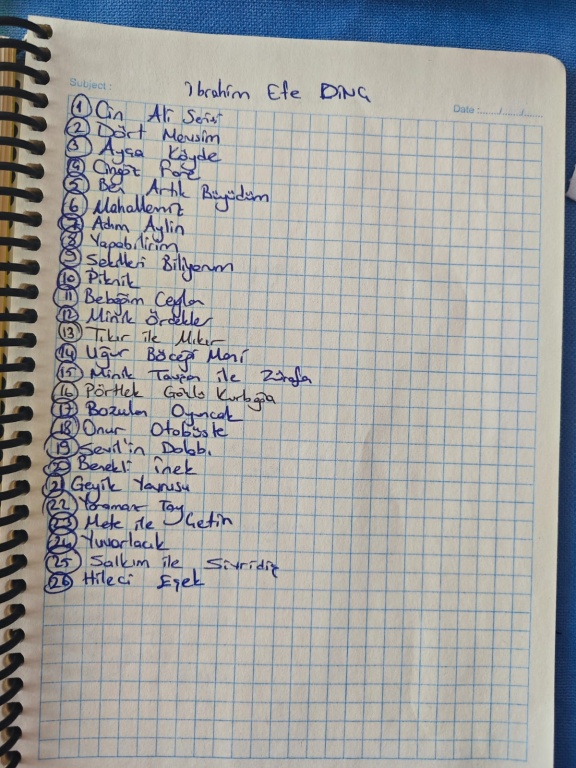 Subject :
İbrahim Efe DİNÇ
Date :....../....../......
1 Cin Ali Serisi
2 Dört Mevsim
3 Ayşa Köyde
4 Cingöz Fare
5 Ben Artık Büyüdüm
6 Mahallemiz
7 Adım Aylin
8 Yapabilirim
9 Şekilleri Biliyorum
10 Piknik
11 Bebeğim Ceylan
12 Minik Ördekler
13 Tıkır ile Mıkır
14 Uğur Böceği
15 Minik Tavşan ile Zürafa
16 Pörtlek Gözlü Kurbağa
17 Bozulan Oyuncak
18 Onur Otobüste
19 Sevil'in Dolabı
20 Benekli İnek
21 Geyik Yavrusu
22 Yaramaz Tay
23 Mete ile Çetin
24 Yuvarlacık
25 Salkım ile Sivridiş
26 Hileci Eşek